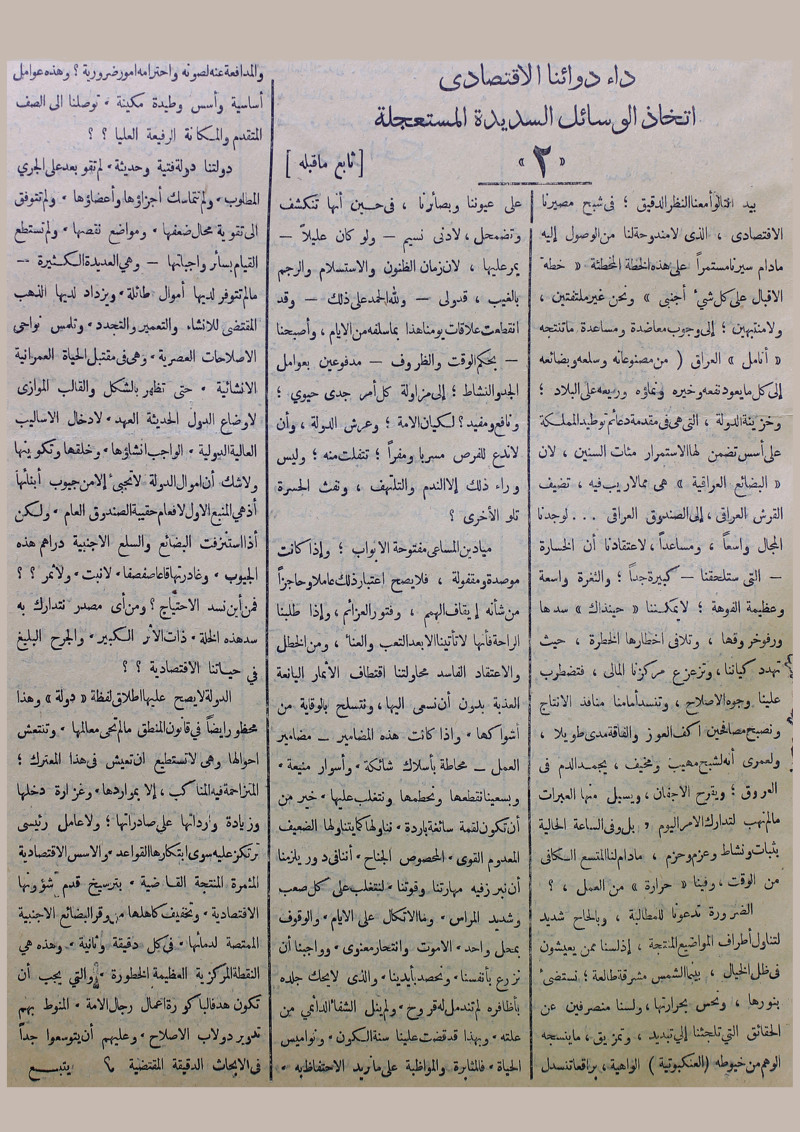 داء دوائنا الاقتصادى
اتخاذ الوسائل السديدة المستعجلة
«٢»
[ تابع ماقبله ]
بيد اننا لو أمعنا النظر الدقيق ؛ فى شبح مصيرنا
الاقتصادى ، الذى لامندوحة لنا من الوصول إليه
مادام سيرنا مستمراً على هذه الخطة المخطئة « خطة
الاقبال على كل شئ أجنبى » ونحن غير ملتفتين ،
ولا منتبهين ؛ إلى وجوب معاضدة ومساعدة ماتنتجه
« أنامل » العراق ( من مصنوعاته وسلعه وبضائعه
إلى كل ما يعود نفعه وخيره ونماؤه وريعه على البلاد ؛
وخزينة الدولة ، التى هى فى مقدمة دعائم توطيد المملكة
على أسس تضمن لها الاستمرار مئات السنين ، لان
« البضائع العراقية » هى ممالاريب فيه ، تضيف
القرش العراقى ، إلى الصندوق العراقى ... لوجدنا
المجال واسعاً ، ومساعداً ، لاعتقادنا أن الخسارة
— التى ستلحقنا — كبيرة جداً ؛ والثغرة واسعة
وعظيمة الفوهة ؛ لايمكننا « حينذاك » سدها
ورفو خروقها ، وتلافى اخطارها الخطرة ، حيث
تهدد كياننا ، وتزعزع مركزنا المالى ، فتضطرب
علينا وجوه الاصلاح ، وتنسد أمامنا منافذ الانتاج
ونصبح مصافحين اكف العوز والفاقة مدى طويلا ،
ولعمرى أنه لشبح مهيب ومخيف ، يجمد الدم فى
العروق ؛ ويقرح الاجفان ، ويسيل منها العبرات
مالم نهب لتدارك الامر اليوم ، بل وفى الساعة الحالية
بثبات ونشاط وعزم وحزم ، مادام لنا المتسع الكافى
من الوقت ، وفينا « حرارة » من العمل ، ؟
الضرورة تدعونا للمطالبة ، وبالحاح شديد
لتناول أطراف المواضيع المنتجة ، إذ لسنا ممن يعيشون
فى ظل الخيال ، بينما الشمس مشرقة طالعة ؛ نستضئ
بنورها ، ونحس بحرارتها ، ولسنا منصرفين عن
الحقائق التي تلجئنا إلي تبديد ، وتمزيق ، ماينسجه
الوهم من خيوطه (العنكبوتية ) الواهية ، براقعا تنسدل
على عيوننا وبصائرنا ، فى حسين أنها تنكشف
وتضمحل ، لادنى نسيم — ولو كان عليلاً —
يمر عليها ، لان زمان الظنون والاستسلام والرجم
بالغيب ، قد ولى — ولله الحمد على ذلك — وقد
انقطعت علاقات يومنا هذا بما سلفه من الايام ، وأصبحنا
— بحكم الوقت والظروف — مدفوعين بعوامل
الجد والنشاط ؛ إلى مزاولة كل أمر جدى حيوي ؛
ونافع ومفيد ؟ لكيان الامة ؛ وعرش الدولة ، وأن
لاندع للفرص مسربا ومفراً ؛ تتفلت منه ؛ وليس
وراء ذلك إلا الندم والتلهف ، ونفث الحسرة
تلو الأخرى ؟
ميادين المساعى مفتوحة الابواب ؛ وإذا كانت
موصدة ومقفولة ، فلا يصح اعتبار ذلك عاملا وحاجزاً
من شأنه إيقاف الهمم ، وفتور العزائم ، وإذا طلبنا
الراحة فأنها لاتأتينا الابعد التعب والعناء ، ومن الخطل
والاعتقاد الفاسد محاولتنا اقتطاف الأثمار اليانعة
العذبة بدون أن نسعى اليها ، ونتسلح بالوقاية من
أشواكها • واذا كانت هذه المضامير — مضامير
العمل — محاطة بأسلاك شائكة • وأسوار منيعة •
وبسعينا نقطعها ونحطمها ونتغلب عليها • خير من
أن تكون لقمة سائغة باردة • نناولها كما يتناولها الضعيف
المعدوم القوى • المحصوص الجناح • أننا فى دور يلزمنا
أن نبرز فيه مهارتنا وقوتنا • لنتغلب على كل صعب
وشديد المراس • وما الاتكال على الايام • والوقوف
بمحل واحد • الاموت وانتحار معنوى • وواجبنا أن
نزرع بأنفسنا • ونحصد بأيدينا • والذى لايحك جلده
بأظافره لم تندمل له قروح • ولم ينل الشفاء الدائمي من
علته • وبهذا قد قضت علينا سنة الكون • ونواميس
الحياة • فالمثابرة والمواظبة على مانريد الاحتفاظ به •
والمدافعة عنه لصونه واحترامه امور ضرورية ؟ وهذه عوامل
أساسية وأسس وطيدة مكينة • توصلنا الى الصف
المتقدم والمكانة الرفيعة العليا ؟ ؟
دولتنا دولة فتية وحديثة • لم تقو بعد على الجري
المطلوب • ولم تتماسك أجزاؤها وأعضاؤها • ولم تتوفق
الى تقوية محال ضعفها • ومواضع نقصها • ولم تستطع
القيام بسائر واجباتها — وهي العديدة الكثيرة —
مالم تتوفر لديها أموال طائلة • ويزداد لديها الذهب
المقتضى للانشاء والتعمير والتجدد • وتلمس نواحى
الاصلاحات العصرية • وهى فى مقتبل الحياة العمرانية
الانشائية • حتى تظهر بالشكل والقالب الموازى
لاوضاع الدول الحديثة العهد • لادخال الاساليب
العالية الدولية • الواجب انشاؤها • وخلقها وتكوينها
ولاشك أن اموال الدولة لاتجبئ إلا من جيوب أبنائها
أذهي المنبع الاول لافعام حقيبة الصندوق العام • ولكن
أذا استنزفت البضائع والسلع الاجنبية دراهم هذه
الجيوب • وغادرتها قاعاصفصفا • لانبت • ولاثمر ؟ ؟
فمن أين نسد الاحتياج ؟ ومن أى مصدر نتدارك به
سد هذه الخلة • ذات الأثر الكبير • والجرح البليغ
في حياتنا الاقتصادية ؟ ؟
الدولة لا يصح عليها اطلاق لفظة « دولة » وهذا
محظور ايضاً في قانون المنطق مالم تحى معالمها • وتنتعش
احوالها وهى لاتستطيع ان تعيش فى هذا المعترك ؛
المتزاحمة فيه المناكب ، إلا بمواردها • وغزارة دخلها
وزيادة وارداتها على صادراتها ؛ ولا عامل رئيسى
ترتكز عليه سوى ابتكارها القواعد • والاسس الاقتصادية
المثمرة المنتجة القاضية • بترسيخ قدم شؤونها
الاقتصادية • وتخفيف كاهلها من وقر البضائع الاجنبية
الممتصة لدمائها • فى كل دقيقة وثانية • وهذه هي
النقطة المركزية العظيمة الخطورة • والتي يجب أن
تكون هدفا لباكورة اعمال رجال الامة • المنوط بهم
تدوير دولاب الاصلاح • وعليهم أن يتوسعوا جداً
فى الابحاث الدقيقة المقتضية ؟ يتبع